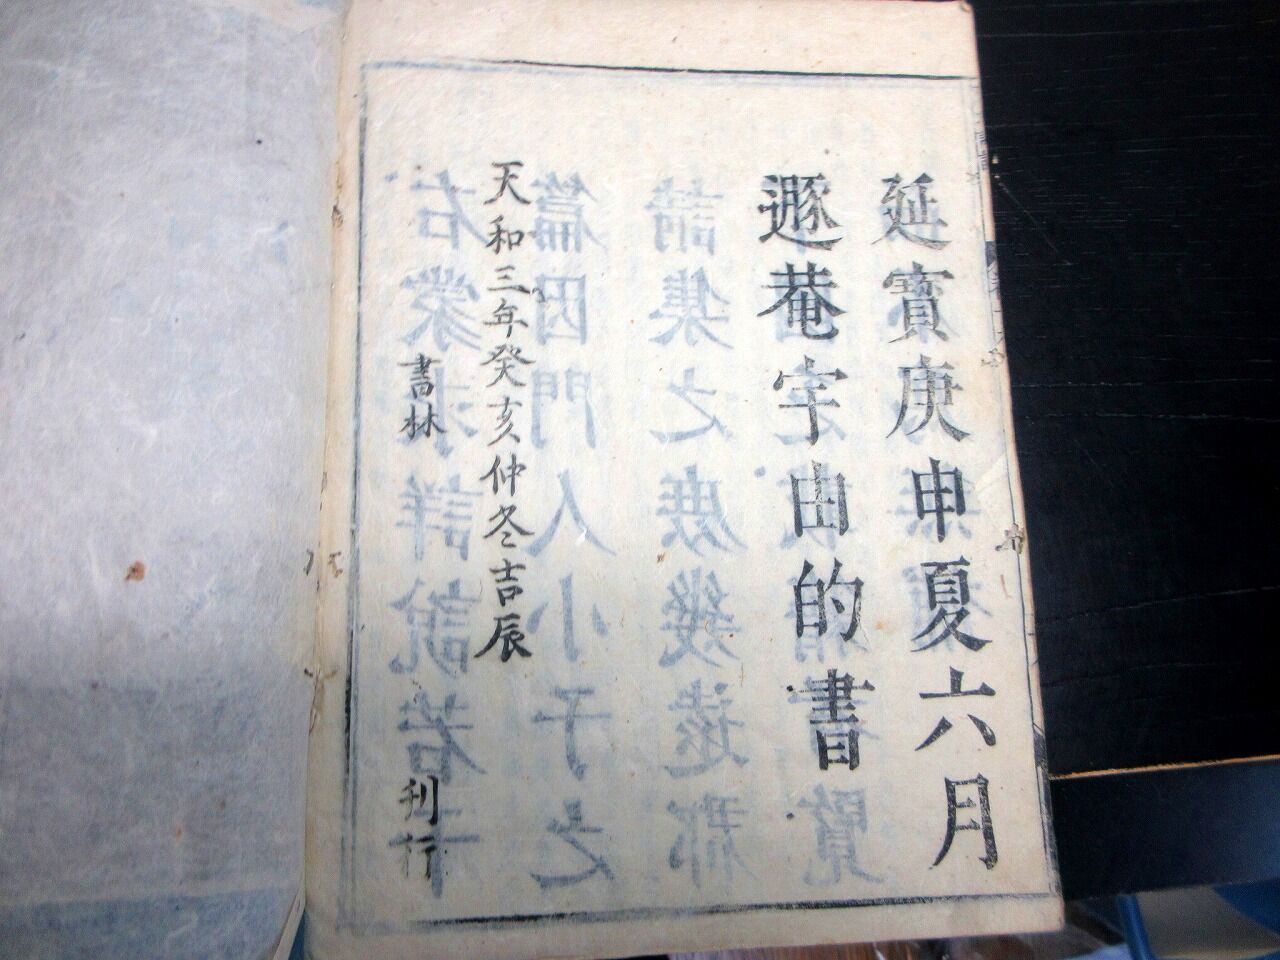 延寶庚申夏六月
遯菴宇由的書
天和三年癸亥仲冬吉辰
書林
刊行